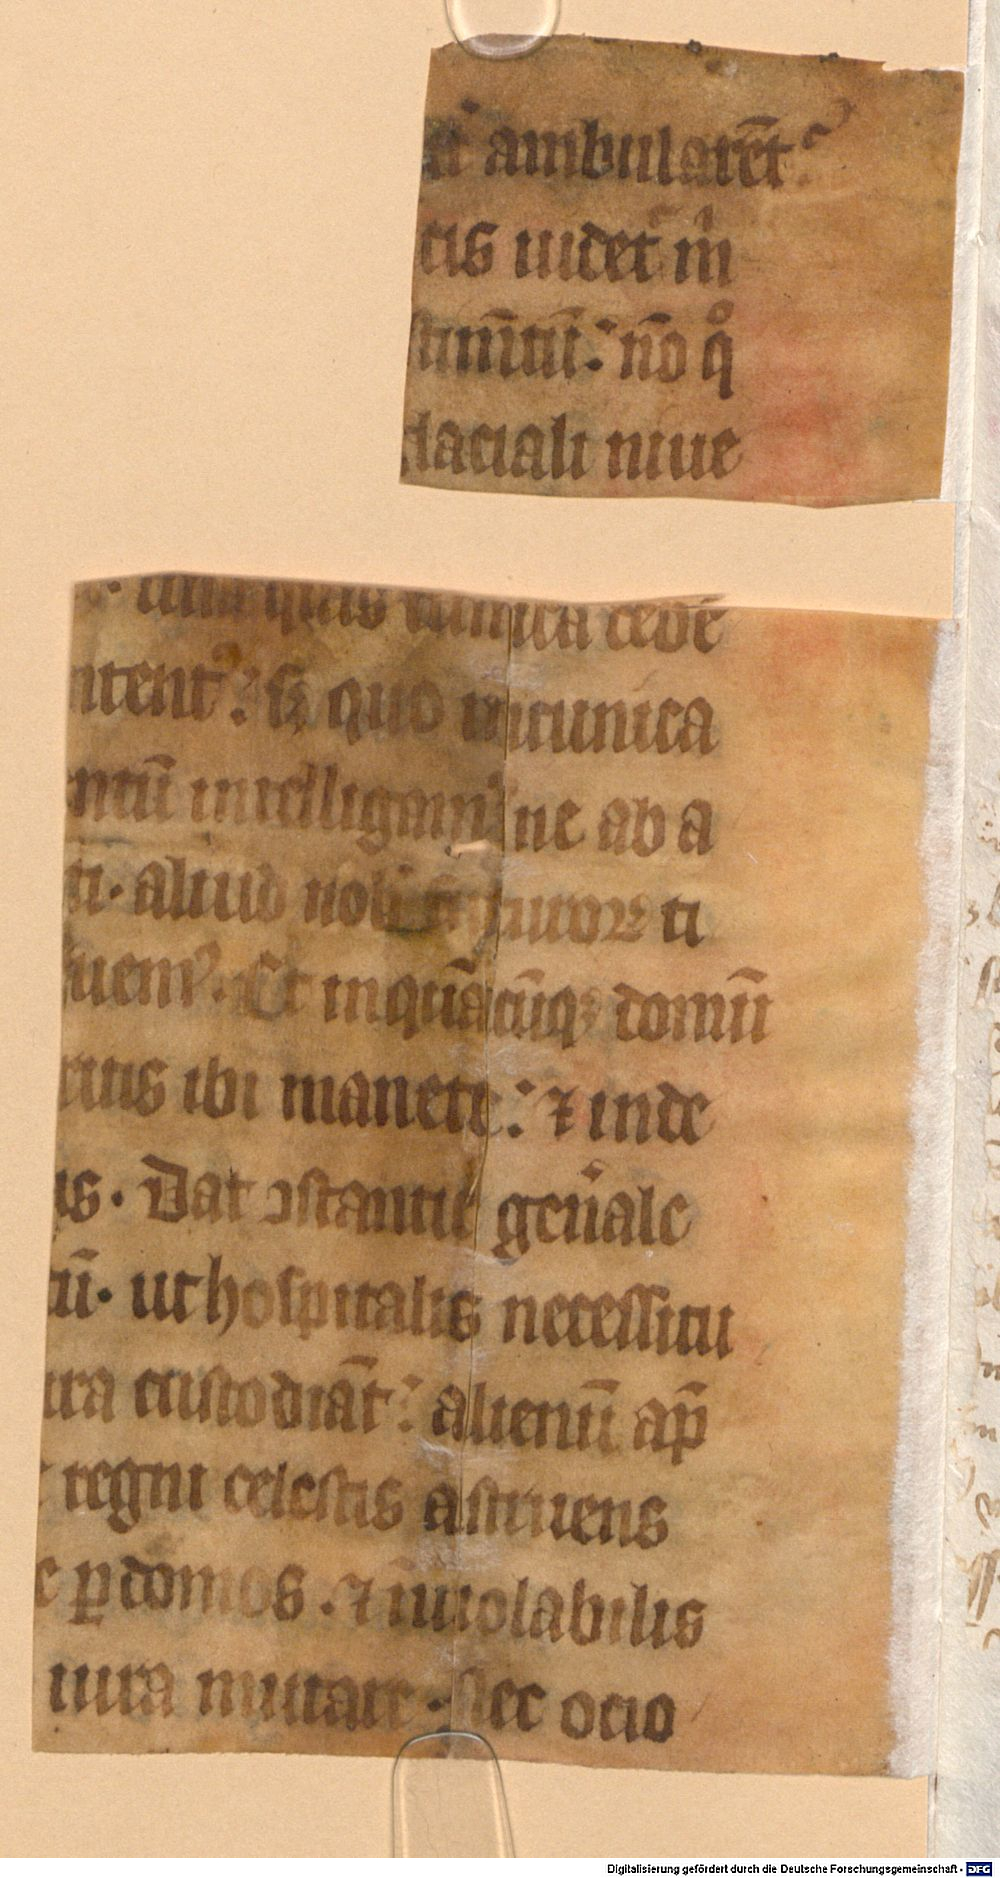 ambularēt
tis uidet᷒ m͛
nō qͦ
glaciali niue
quis tunica cedē
ntent᷒: sꝫ quo in tunica
ntū intelligam᷒ ne ab a
ti. aliud nob ti
uem᷒. Et in quācūqꝫ domū
ritis ibi manete: ⁊ inde
is. Dat ↄstantie gen͛ale
tū. ut hospitalis necessitu
ura custodiāt: alienū ap̄
t regni celestis astruens
e ꝑ domos. ⁊ īuiolabilis
iura mutare. Nec ocio
Digitalisierung gefördert durch die Deutsche Forschungsgemeinschaft - DFG